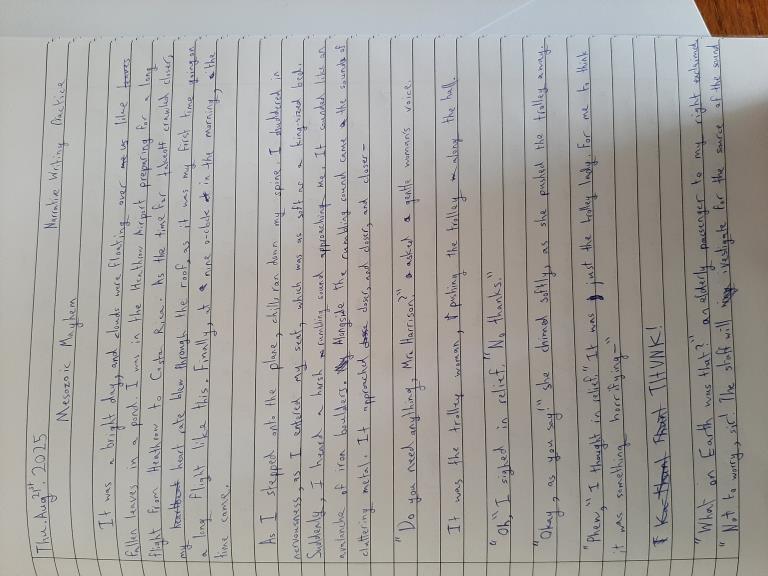 Thu. Aug 21st. 2025
Narrative Writing Practice
Mesozoic Mayhem
It was a bright day, and clouds were floating over us like
fallen leaves in a pond. I was in the Heathrow Airport preparing for a long
flight from Heathrow to Costa Rica. As the time for takeoff crawled closer,
my heart rate blew through the roof, as it was my first time going on
a long flight like this. Finally, at nine o-clock in the morning, the
time came.
As I stepped onto the plane, chills ran down my spine. I shuddered in
nervousness as I entered my seat, which was as soft as a king-sized bed.
Suddenly, I heard a harsh rumbling sound approaching me. It sounded like an
avalanche of iron boulders. Alongside the rumbling sound came the sounds of
clattering metal. It approached closer, and closer, and closer-
"Do you need anything, Mr. Harrison?" asked a gentle woman's voice.
It was the trolley woman, pushing the trolley along the hall.
"Oh," I sighed in relief. "No thanks."
"Okay, as you say!" she chimed softly, as she pushed the trolley away.
"Phew," I thought in relief. "It was just the trolley lady. For me to think
it was something horrifying-"
THUNK!
"What on Earth was that?" an elderly passenger to my right exclaimed.
"Not to worry, sir! The staff will investigate for the source of the sound